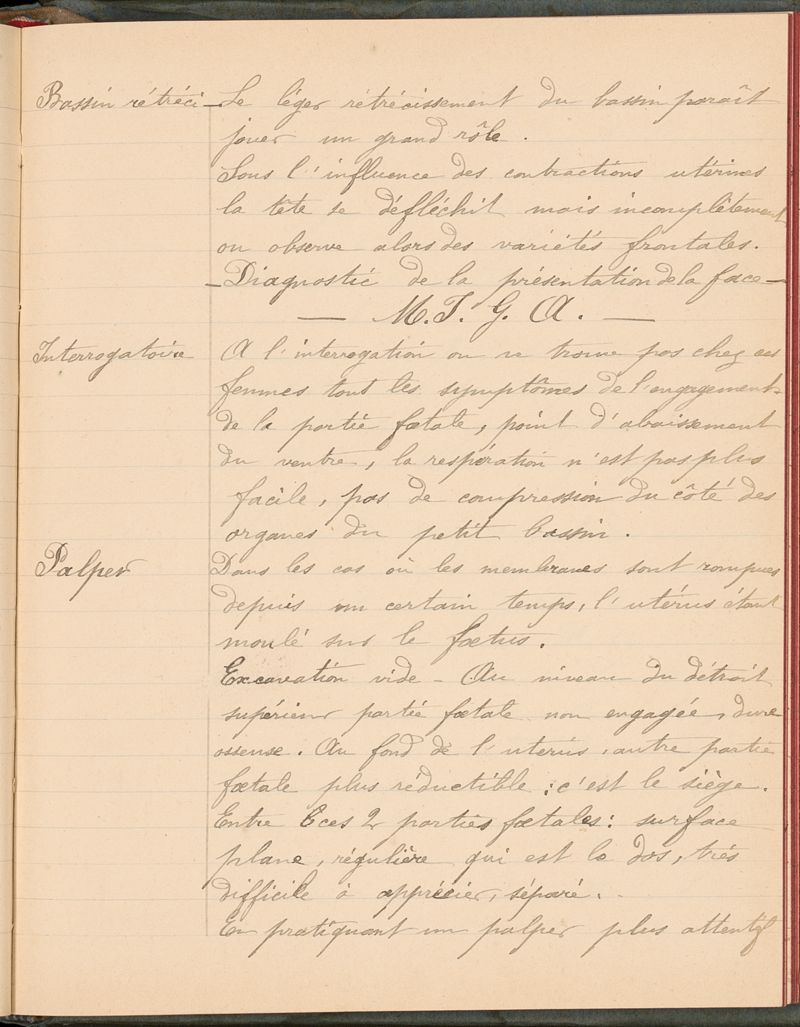 Bassin rétréci — Le léger rétrécissement du bassin paraît
jouer un grand rôle .
Sous l'influence des contractions utérines
la tête se défléchit mais incomplètement
on observe alors des variétés frontales.
— Diagnostic de la présentation de la face —
— M. I. G. A. —
Interrogatoire A l'interrogation on ne trouve pas chez ces
femmes tout les symptômes de l'engagement
de la partie fœtale, point d'abaissement
du ventre, la respiration n'est pas plus
facile, pas de compression du côté des
organes du petit bassin .
Palper Dans les cas où les membranes sont rompues
depuis un certain temps, l'utérus étant
moulé sur le fœtus.
Excavation vide - Au niveau du détroit
supérieur partie fœtale non engagée, dure
osseuse. Au fond de l'uterus, autre partie
fœtale plus réductible : c'est le siège.
Entre ces 2 parties fœtales : surface
plane, régulière qui est le dos, très
difficile à apprécier, séparé.
En pratiquant un palper plus attentif